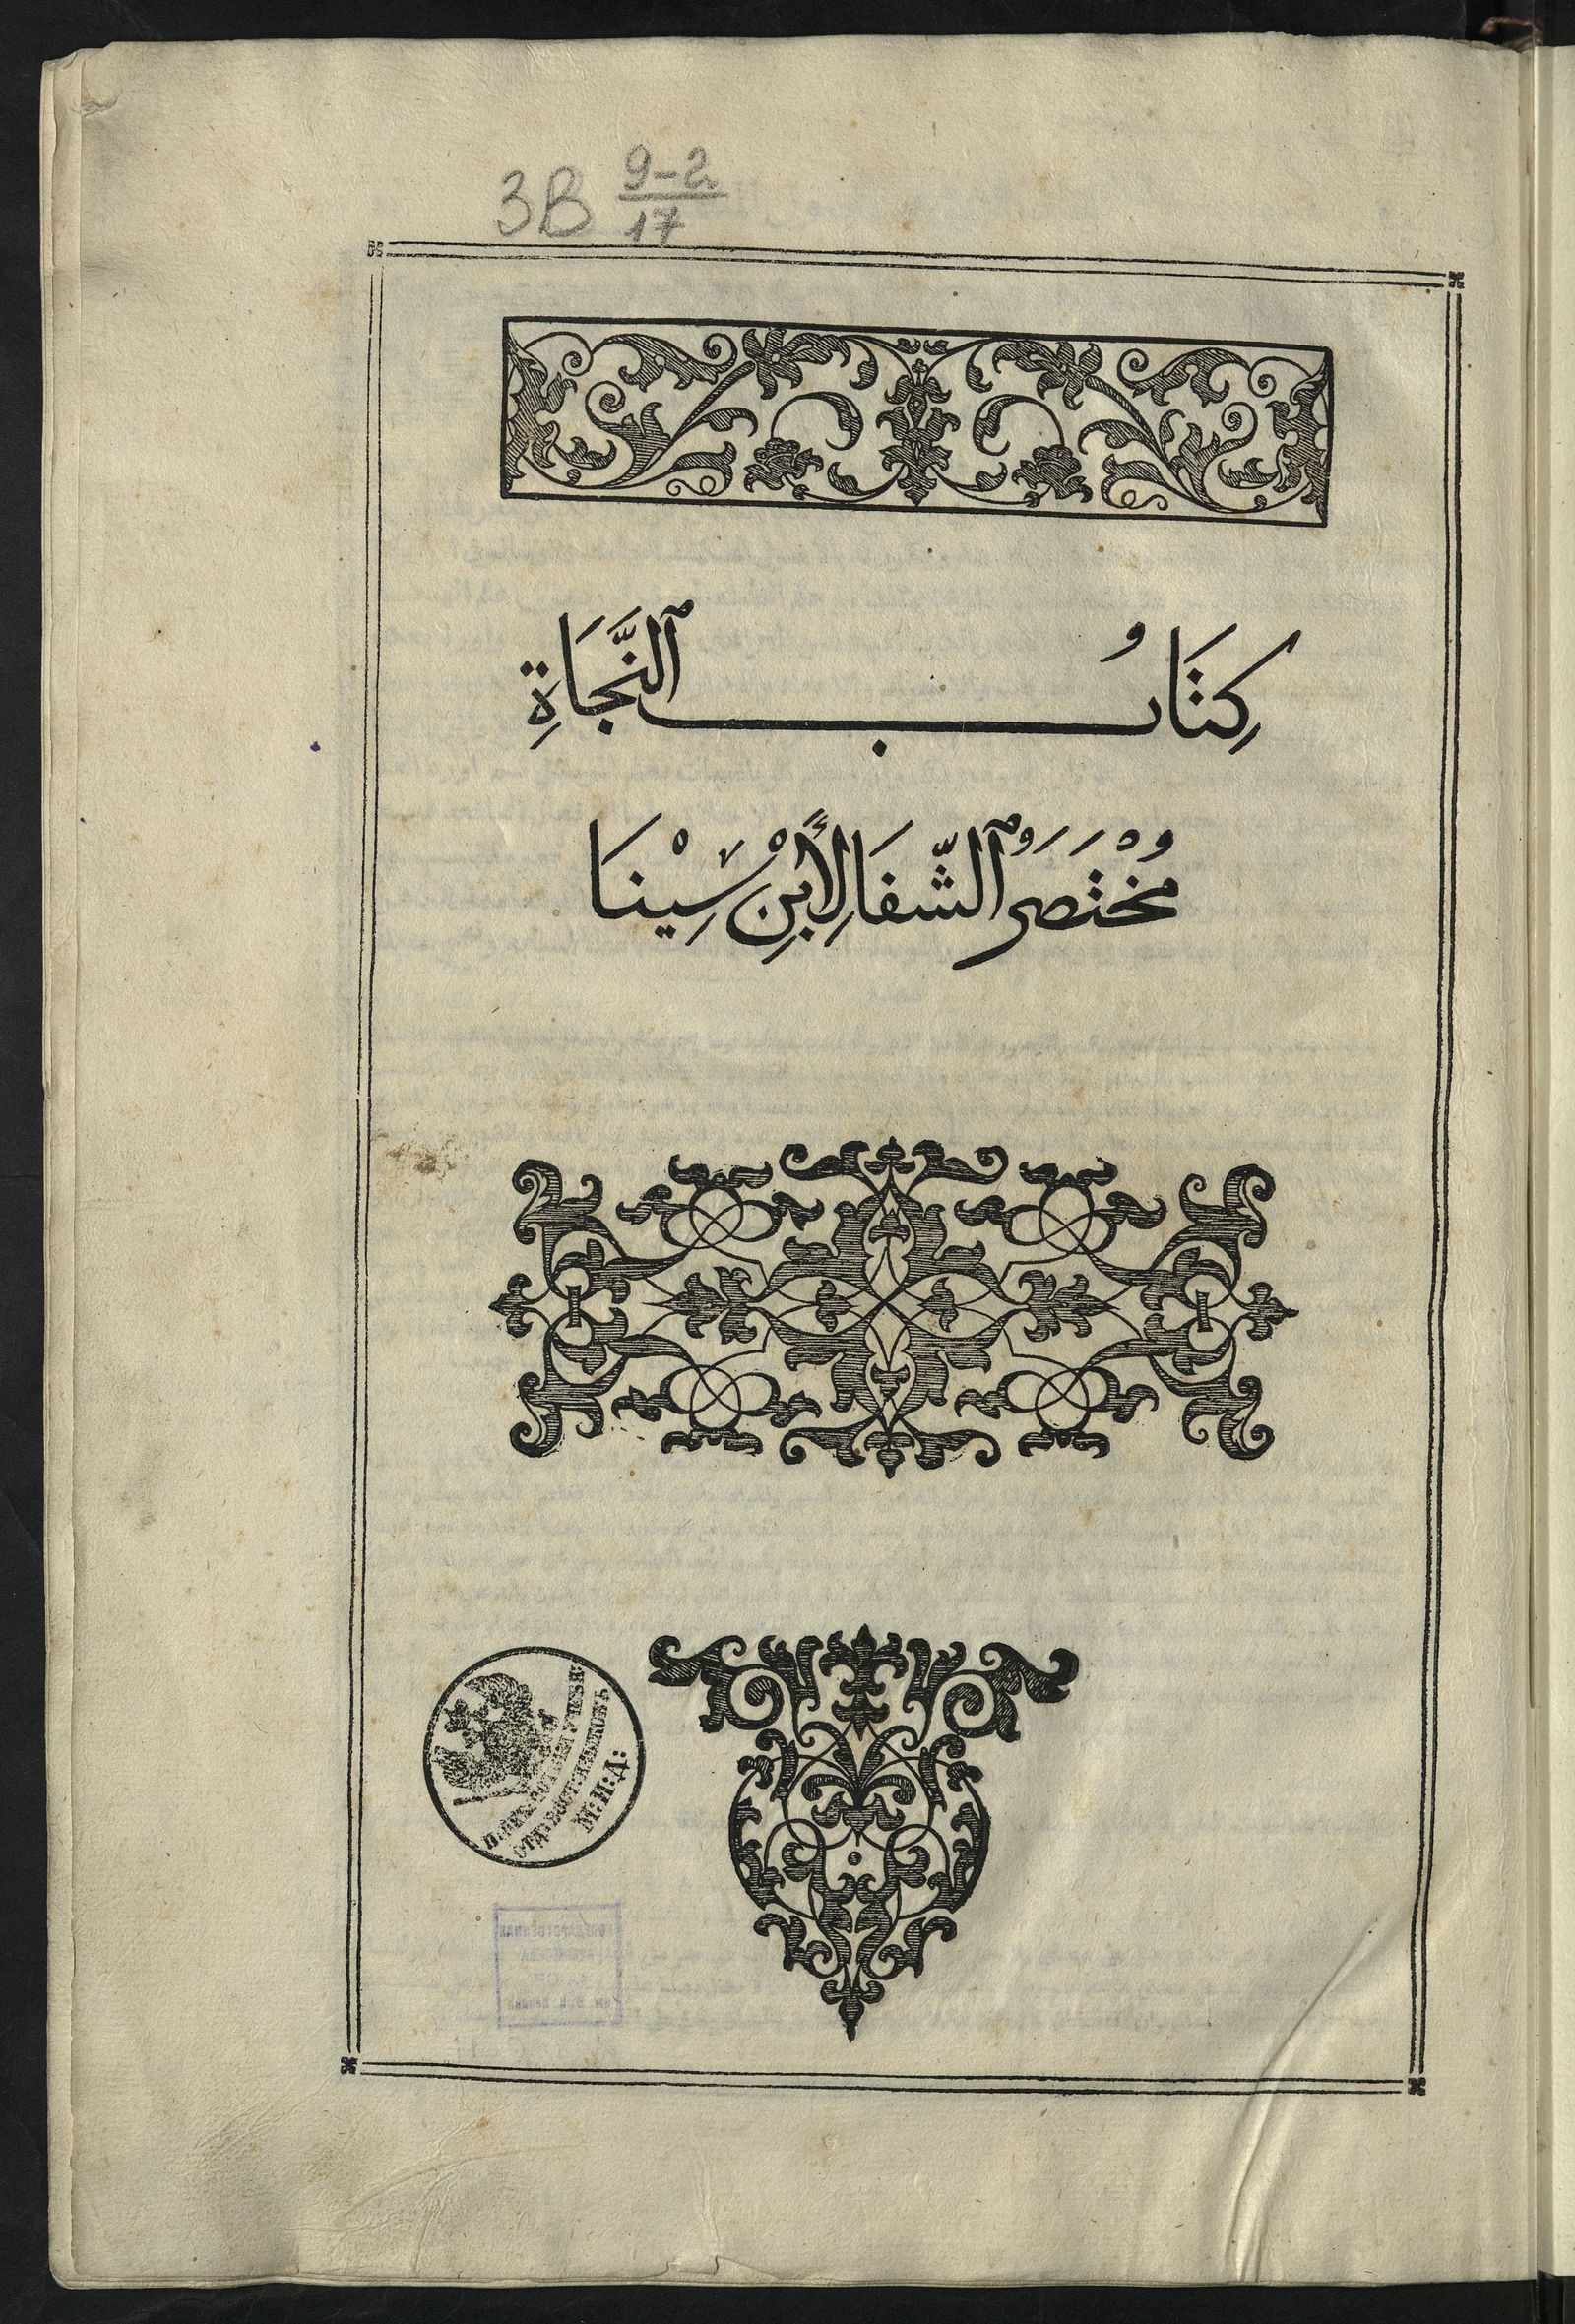 3В 9-2
17
كِتَابُ ٱلنَّجَاةِ
مُخْتَصَرُ ٱلشِّفَا لِأَبْنِ سِيْنَا
М:И:Д: